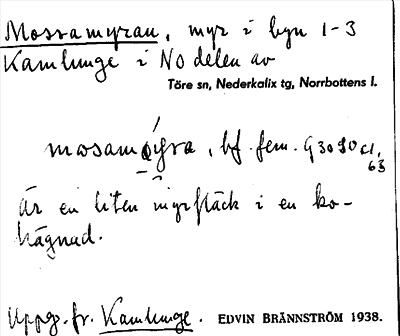 Mossamyran, myr i byn 1-3
Kamlunge i NO delen av
Töre sn, Nederkalix tg, Norrbottens l.
mosamyra, bf. fem. G3090 cl,
63
Är en liten myrfläck i en ko-
hägnad.
Uppg. fr. Kamlunge. EDVIN BRÄNNSTRÖM 1938.